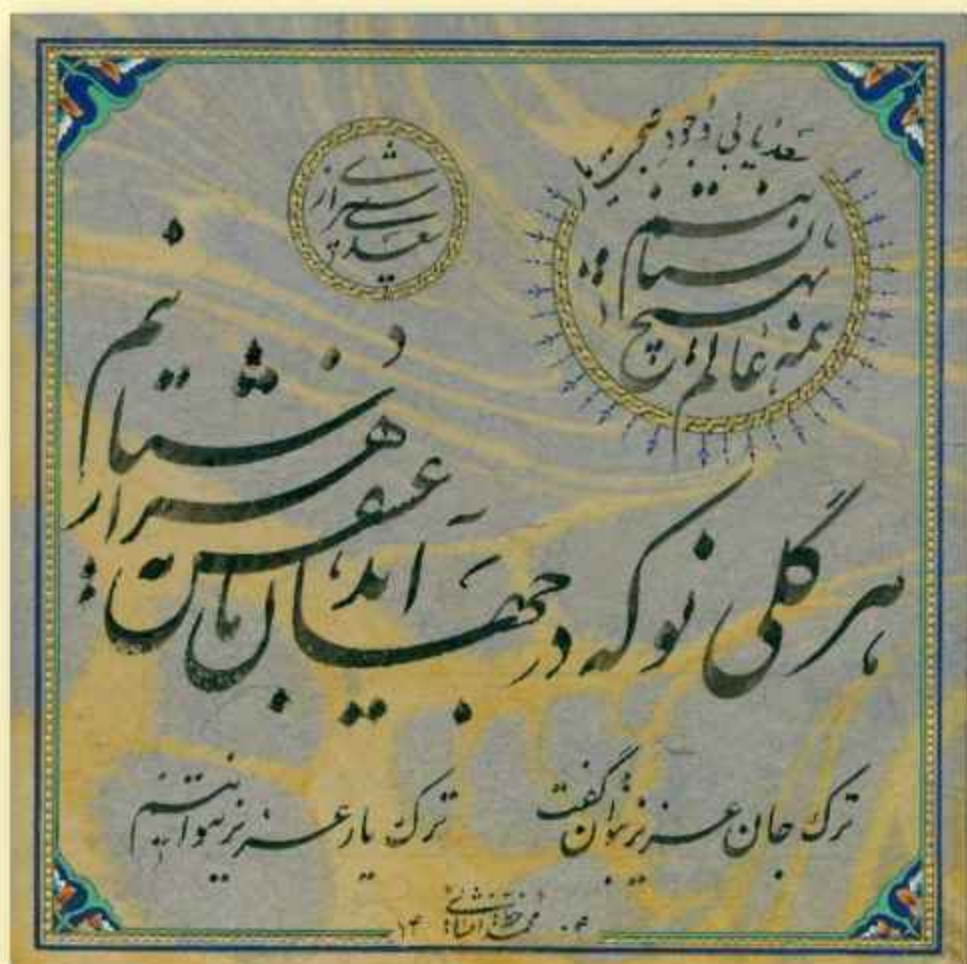 سعدیا بی وجود صحبت یار
همه عالم بهیچ نستانیم
سعدی شیرازی
هر گلی نو که در جهان آید
ما به عشقش هزاردستانیم
ترک جان عزیز بتوان گفت
ترک یار عزیز نتوانیم
۱۴۰۴